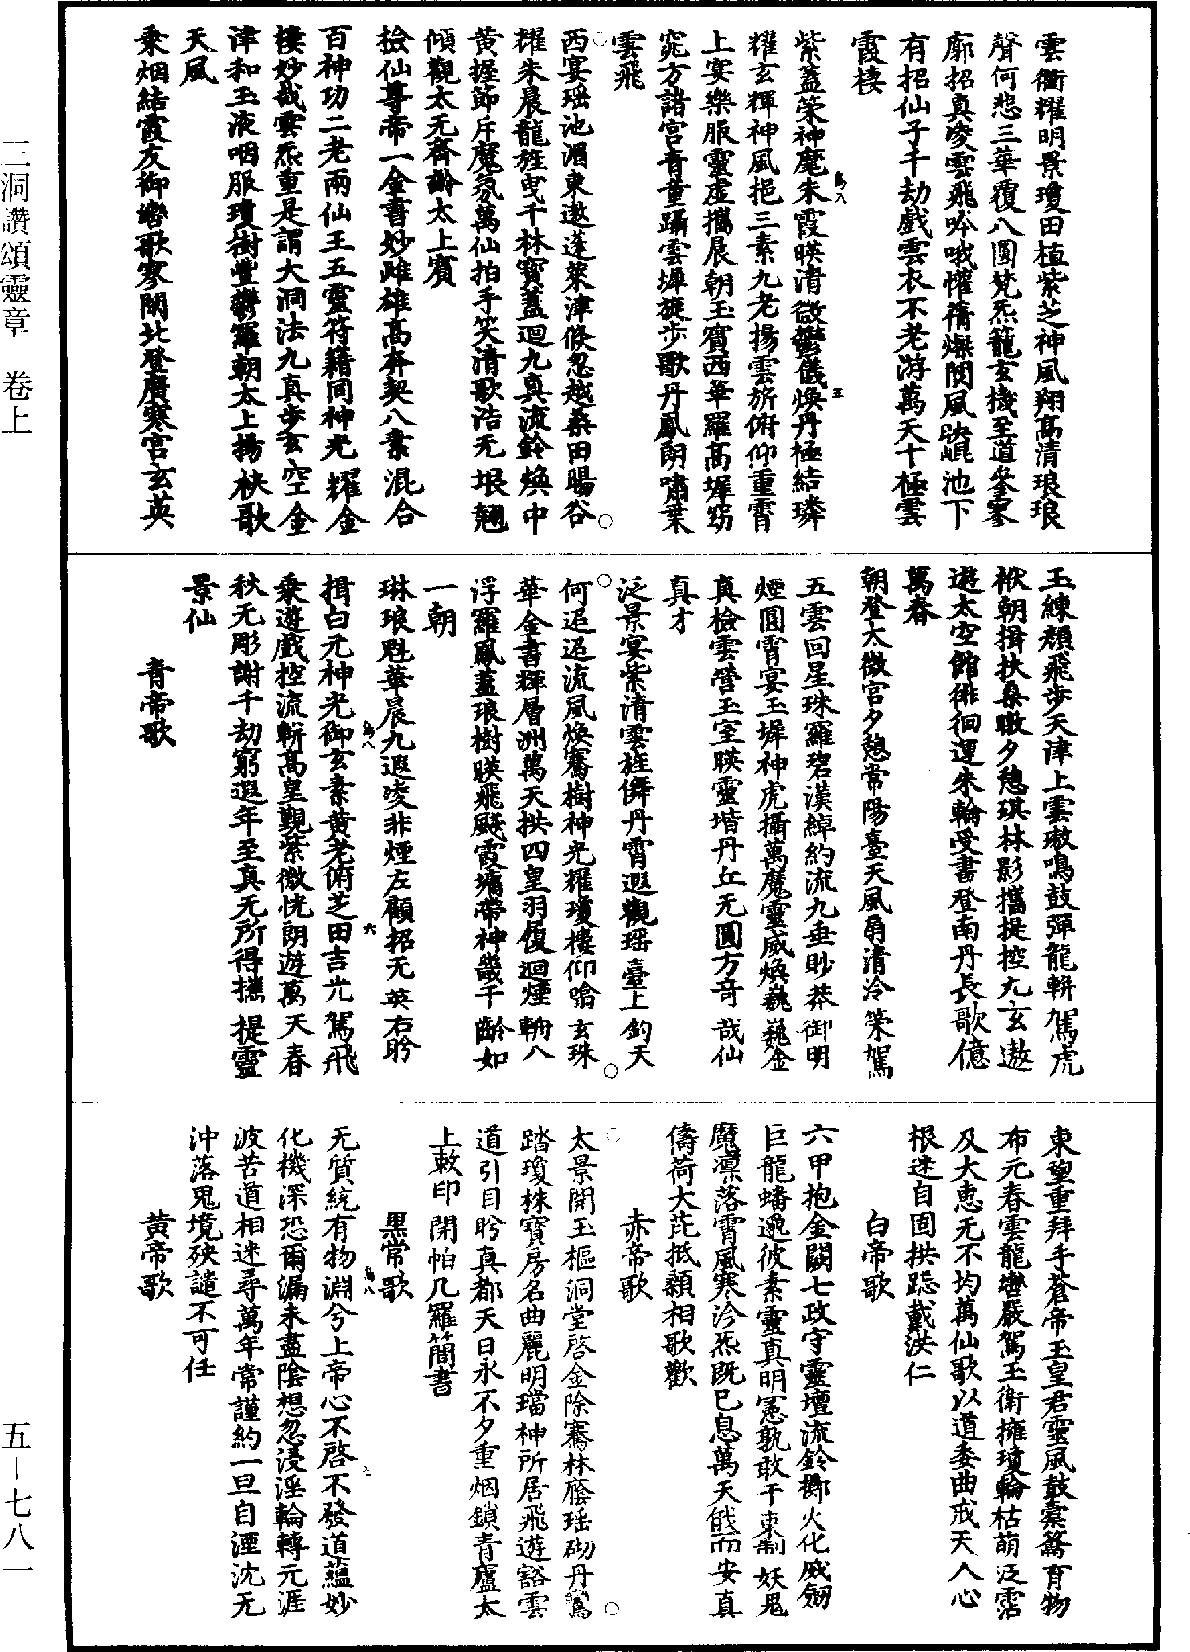 雲衢耀明景瓊田植紫芝神風翔高清琅琅
聲何悲三華覆八圓梵炁籠玄機至道參寥
廓招真凌雲飛吟哦懽脩爍閬風跌崐池下
有招仙子千劫戲雲衣不老游萬天十極雲
霞棲
紫蓋榮神麾朱霞暎清微鬱儀煥丹極結璘
耀玄輝神風挹三素九老揚雲旂俯仰重霄
上宴樂服靈虛攜晨朝玉賓西華羅高墀窈
窕方諸宮青童躡雲墀旋步歌丹鳳朗嘯葉
雲飛
西宴瑶池湄東遨蓬萊津倏忽越桑田暘谷
耀朱晨龍旌曳千林寶蓋迴九真流鈴煥中
黃握節斥魔氛萬仙拍手笑清歌浩无垠翹
傾觀太无齊齡太上賓
檢仙尊帝一金書妙雌雄高奔契八素混合
百神功二老兩仙王五靈符籍同神光耀金
樓妙哉雲炁重是謂大洞法九真步玄空金
津和玉液咽服瓊樹豐鬱羅朝太上揚袂歌
天風
乘烟結霞友御轡歌寥陽北登廣寒宮玄英
玉練顏飛步天津上雲璈鳴鼓彈龍軿駕虎
袱朝揖扶桑暾夕憩琪林影攜提控九玄遨
遊太空館徘徊運朱輪受書登南丹長歌億
萬春
朝登太微宮夕憩常陽臺天風扇清泠策駕
五雲回星珠羅碧漢綽約流九垂眇莽御明
煙圓霄宴玉墀神虎攝萬魔靈威煥巍巍金
真檢雲營玉室暎靈堦丹丘无圓方奇哉仙
真才
泛景宴紫清雲旌僻丹霄遐觀瑶臺上鈞天
何迢迢流風煥騫樹神光耀瓊樓仰喻玄珠
華金書輝層洲萬天拱四皇羽履迴煙輈八
浮羅鳳蓋琅樹暎飛颷霞墉帶神畿千齡如
一朝
琳琅魁華晨九遐凌非煙左顧招无英右盻
揖白元神光御玄素黃老俯芝田吉光駕飛
乘遊戲控流軿高皇觀紫微恍朗遊萬天春
秋无彫謝千劫窮遐年至真无所得攜提靈
景仙
青帝歌
東望重拜手蒼帝玉皇君靈風鼓橐籥育物
布元春雲龍轡嚴駕玉衛擁瓊輪枯萌泛霑
及大惠无不均萬仙歌以道委曲戒天人心
根迷自固拱聽戴洪仁
白帝歌
六甲抱金闕七政守靈壇流鈴擲火化威劒
巨龍蟠逦彼素靈真明憲孰敢干束制妖鬼
魔凜落霄風寒沴炁既已息萬天俄而安真
儔荷大庇抵顙相歌歡
赤帝歌
太景開玉樞洞堂啓金除騫林蔭瑶砌丹鸞
踏瓊株寶房名曲麗明璫神所居飛遊豁雲
道引目盻真都天日永不夕重烟鎖青廬太
上敕印閉怕几羅簡書
黑帝歌
无質統有物淵兮上帝心不啓不發道蘊妙
化機深恐爾漏未盡陰想忽浸淫輪轉元涯
波苦道相迷尋萬年常謹約一旦自湮沈无
沖落鬼境殃譴不可任
黃帝歌
三洞讚頌靈章　卷上
五－七八一